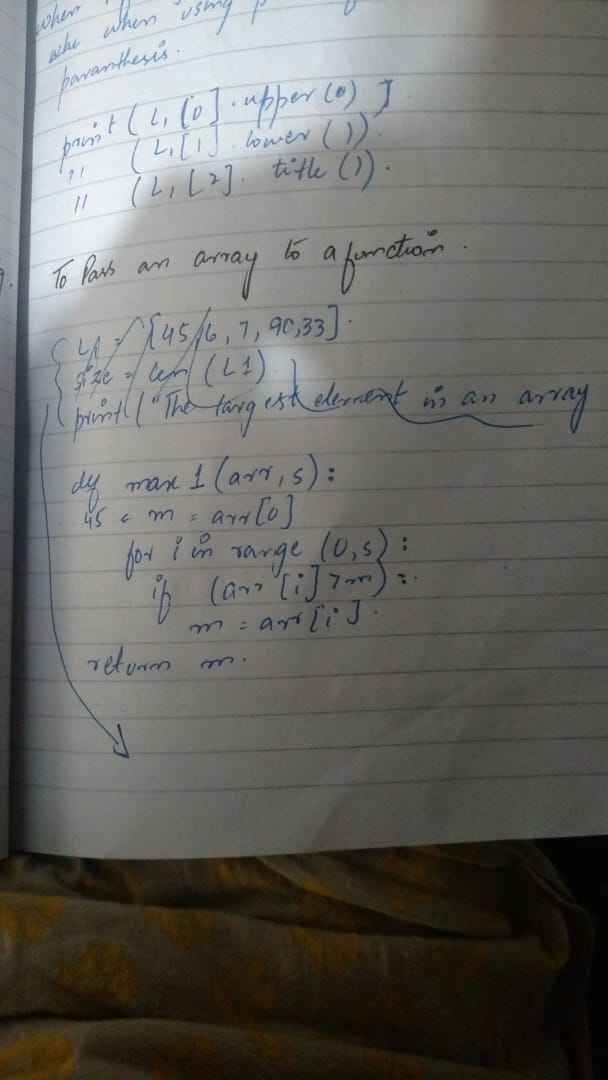 when
when using
paranthesis.
print (L1[0].upper(0) ]
" (L1[1]. lower ( )).
" (L1[2]. title ()).
To Pass an array to a function.
L1 = [45, 6, 7, 90, 33].
size = len (L1)
print ("The largest element in an array
def max 1 (arr, s):
45 ← m = arr[0]
for i in range (0,s):
if (arr [i] > m):
m = arr[i].
return m.